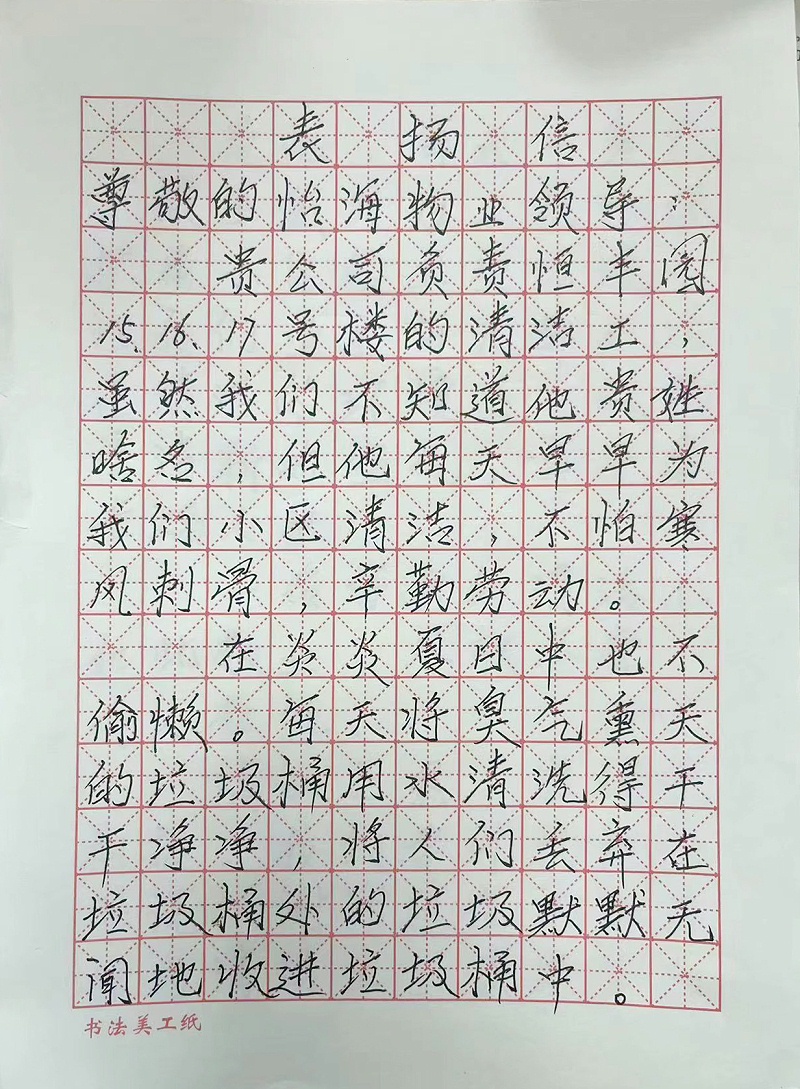 表扬信
尊敬的怡海物业领导：
贵公司负责恒丰园
15、16、17号楼的清洁工，
虽然我们不知道他贵姓
啥名，但他每天早早为
我们小区清洁，不怕寒
风刺骨，辛勤劳动。
在炎炎夏日中也不
偷懒。每天将臭气熏天
的垃圾桶用水清洗得干
干净净，将人们丢弃在
垃圾桶外的垃圾默默无
闻地收进垃圾桶中。
书法美工纸